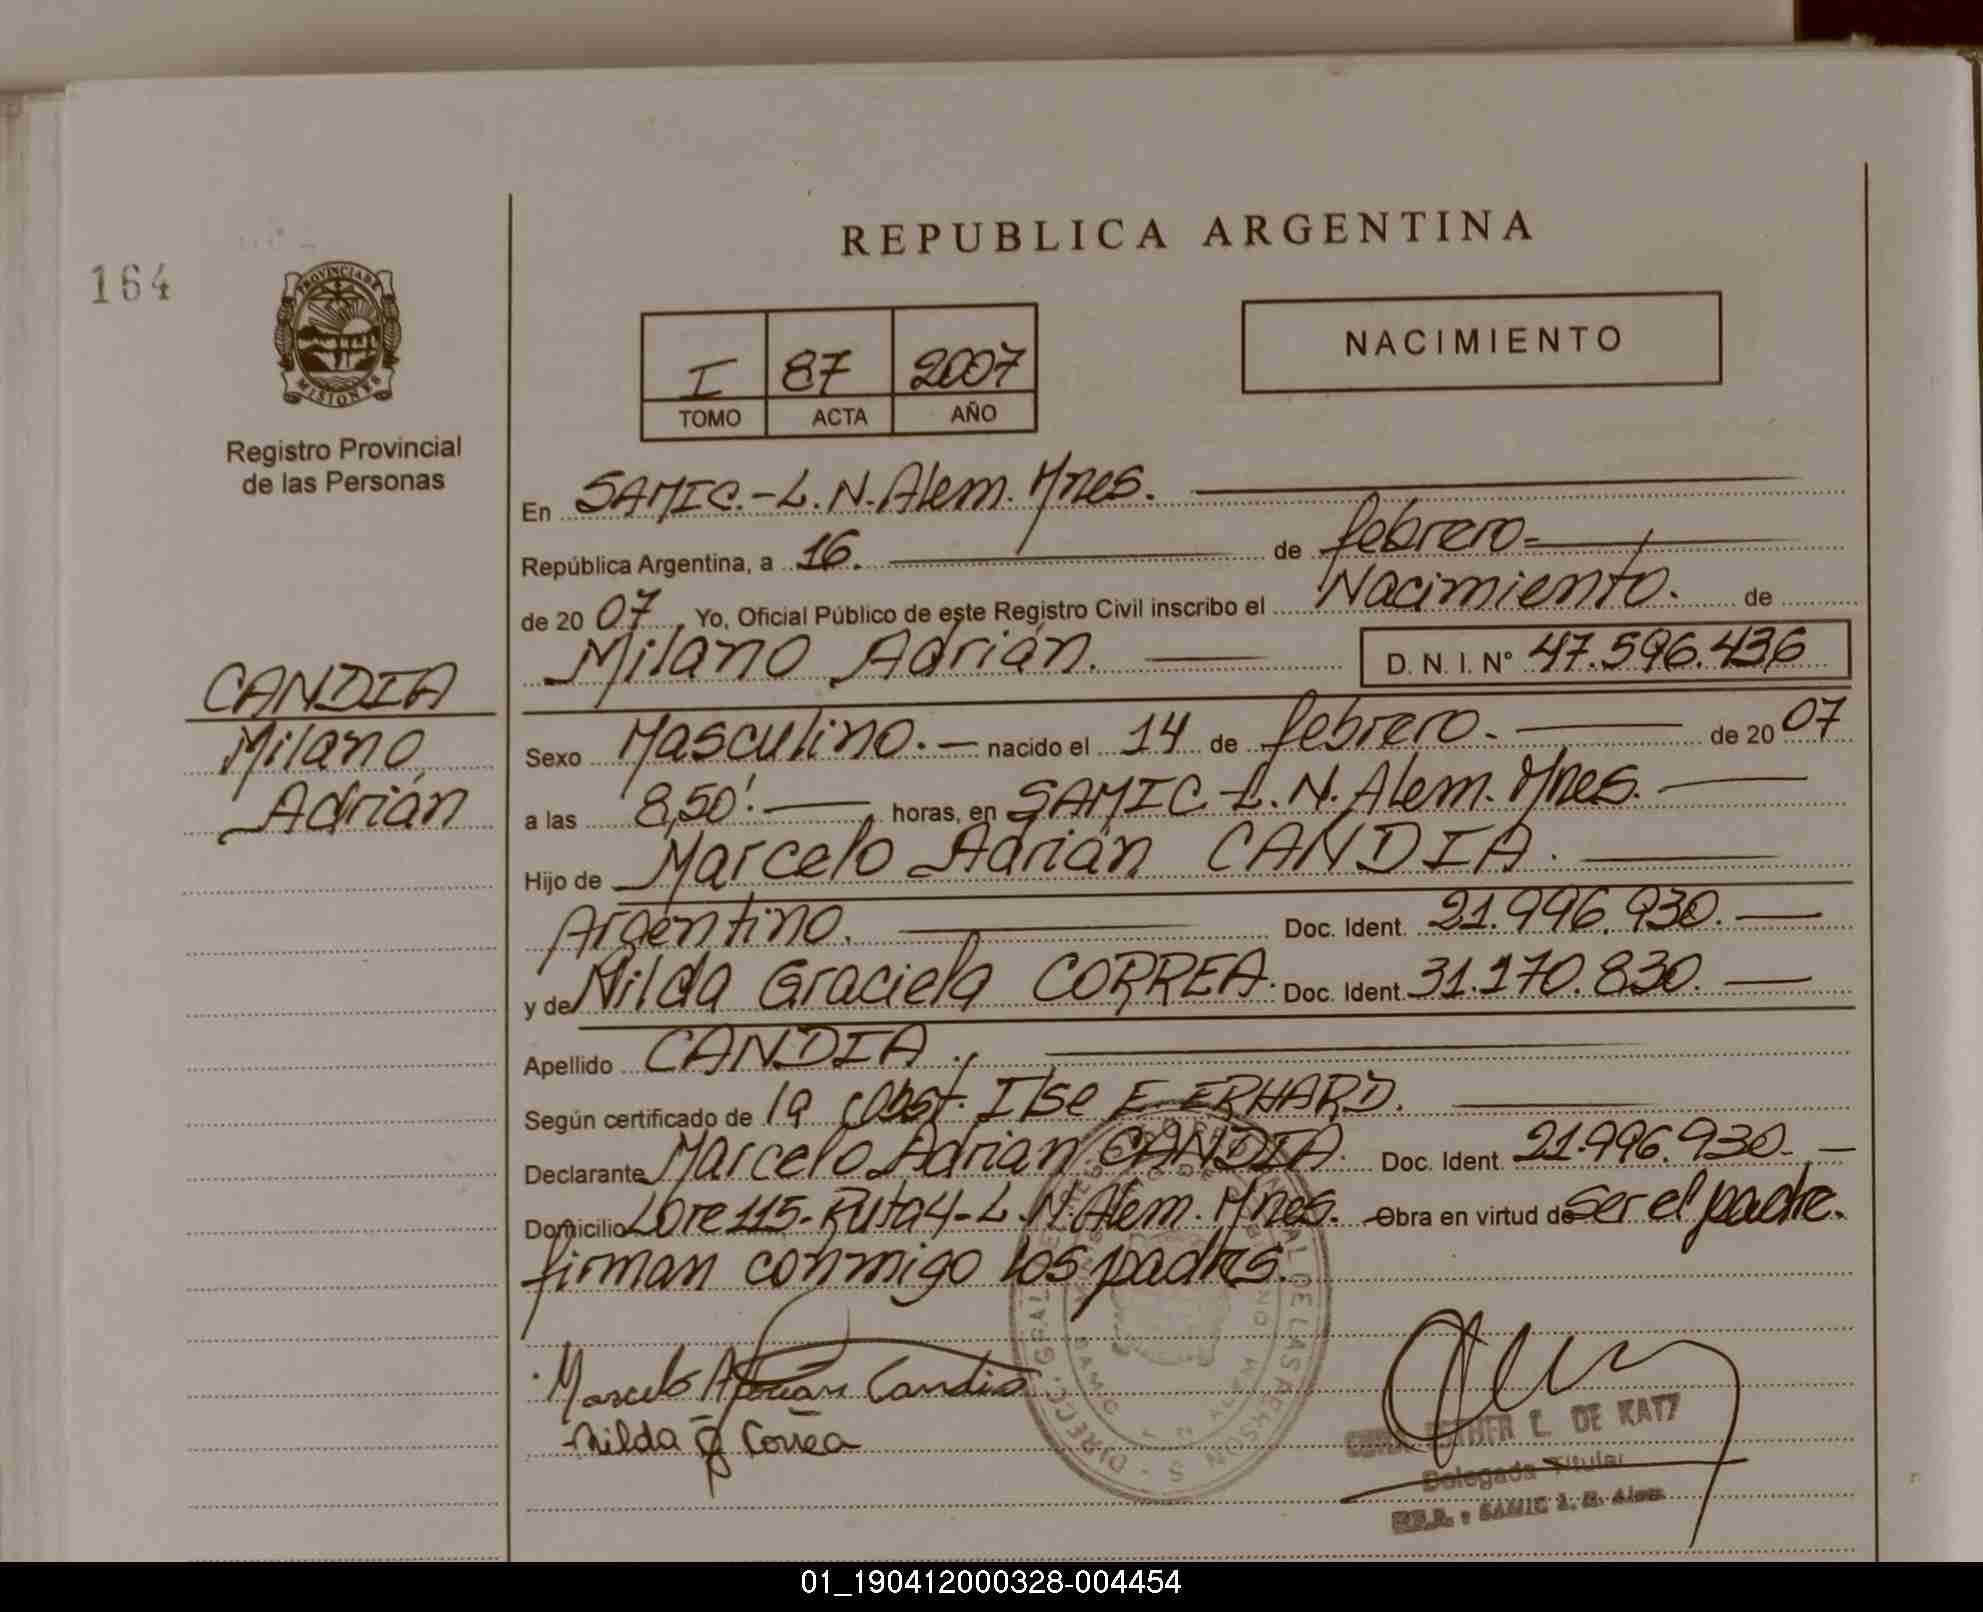 REPUBLICA ARGENTINA
164
PROVINCIA DE
MISIONES
Registro Provincial
de las Personas
I 87 2007
TOMO ACTA AÑO
NACIMIENTO
En SAMIC.-L.N.Alem. Mnes.
República Argentina, a 16. de febrero-
de 20 07. Yo, Oficial Público de este Registro Civil inscribo el Nacimiento. de
Milano Adrián. D. N. I. Nº 47.596.436
CANDIA
Milano
Adrián
Sexo Masculino.- nacido el 14 de febrero. de 20 07
a las 8,50'. horas, en SAMIC-L.N.Alem. Mnes.
Hijo de Marcelo Adrián CANDIA.
Argentino. Doc. Ident. 21.996.930.
y de Nilda Graciela CORREA. Doc. Ident. 31.170.830.
Apellido CANDIA.
Según certificado de la Obst. Ilse E. ERHARD.
Declarante Marcelo Adrian CANDIA. Doc. Ident. 21.996.930.
Domicilio Lote 115-Ruta 4-L.N.Alem. Mnes. Obra en virtud de ser el padre.
firman conmigo los padres.
Marcelo Adrian Candia
Nilda G Correa
ESTHER L. DE KATZ
Delegada Titular
SAMIC L. N. Alem
01_190412000328-004454